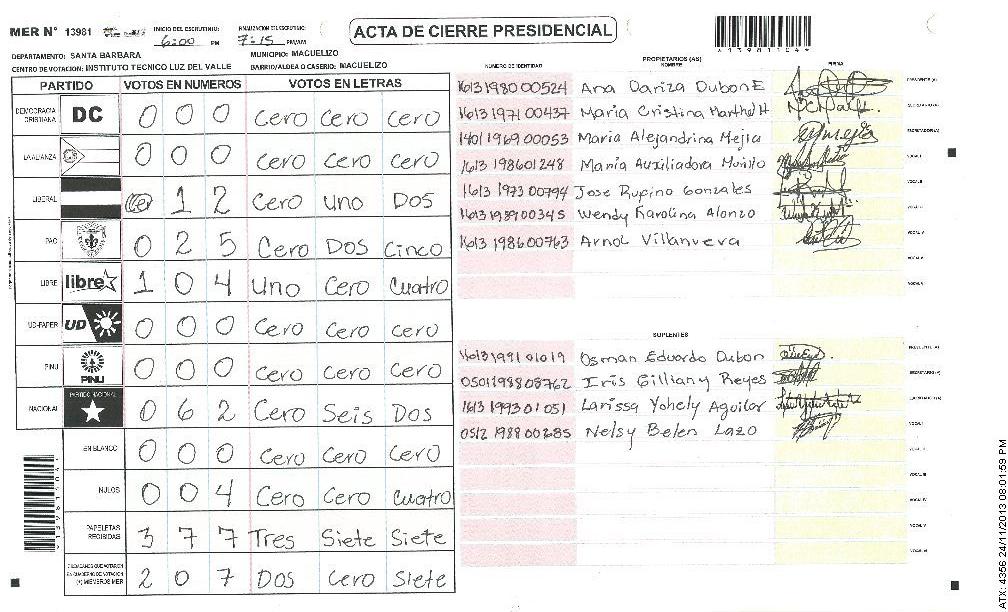 MER N° 13981 INICIO DEL ESCRUTINIO: 6:00 PM FINALIZACION DEL ESCRUTINIO: 7:15 PM/AM
ACTA DE CIERRE PRESIDENCIAL
DEPARTAMENTO: SANTA BARBARA MUNICIPIO: MACUELIZO
CENTRO DE VOTACION: INSTITUTO TECNICO LUZ DEL VALLE BARRIO/ALDEA O CASERIO: MACUELIZO
PARTIDO VOTOS EN NUMEROS VOTOS EN LETRAS
DEMOCRACIA CRISTIANA DC 0 0 0 Cero Cero Cero
LA ALIANZA 0 0 0 Cero Cero Cero
LIBERAL 1 2 Cero Uno Dos
PAC 0 2 5 Cero Dos Cinco
LIBRE libre 1 0 4 Uno Cero Cuatro
UD-FAPER UD 0 0 0 Cero Cero Cero
PINU PINU 0 0 0 Cero Cero Cero
NACIONAL PARTIDO NACIONAL 0 6 2 Cero Seis Dos
EN BLANCO 0 0 0 Cero Cero Cero
NULOS 0 0 4 Cero Cero Cuatro
PAPELETAS RECIBIDAS 3 7 7 Tres Siete Siete
CIUDADANOS QUE VOTARON EN CUADERNO DE VOTACION (+) MIEMBROS MER 2 0 7 Dos Cero Siete
PROPIETARIOS (AS)
NUMERO DE IDENTIDAD NOMBRE FIRMA
1613 1980 00524 Ana Dariza Dubon E PRESIDENTE (A)
1613 1971 00437 Maria Cristina SECRETARIO (A)
1401 1969 00053 Maria Alejandrina Mejia ESCRUTADOR (A)
1613 198601248 Maria Auxiliadora Murillo VOCAL I
1613 1973 00794 Jose Rupino Gonzales VOCAL II
1613 1989 00345 Wendy Karolina Alonzo
1613 1986 00763 Arnol Villanueva
SUPLENTES
1613 1991 01019 Osman Eduardo Dubon PRESIDENTE (A)
0501 1988 08762 Iris Gilliany Reyes SECRETARIO (A)
1613 1993 01051 Larissa Yohely Aguilar ESCRUTADOR (A)
0512 1988 00285 Nelsy Belen Lazo VOCAL I
ATX: 4356 24/11/2013 08:01:59 PM